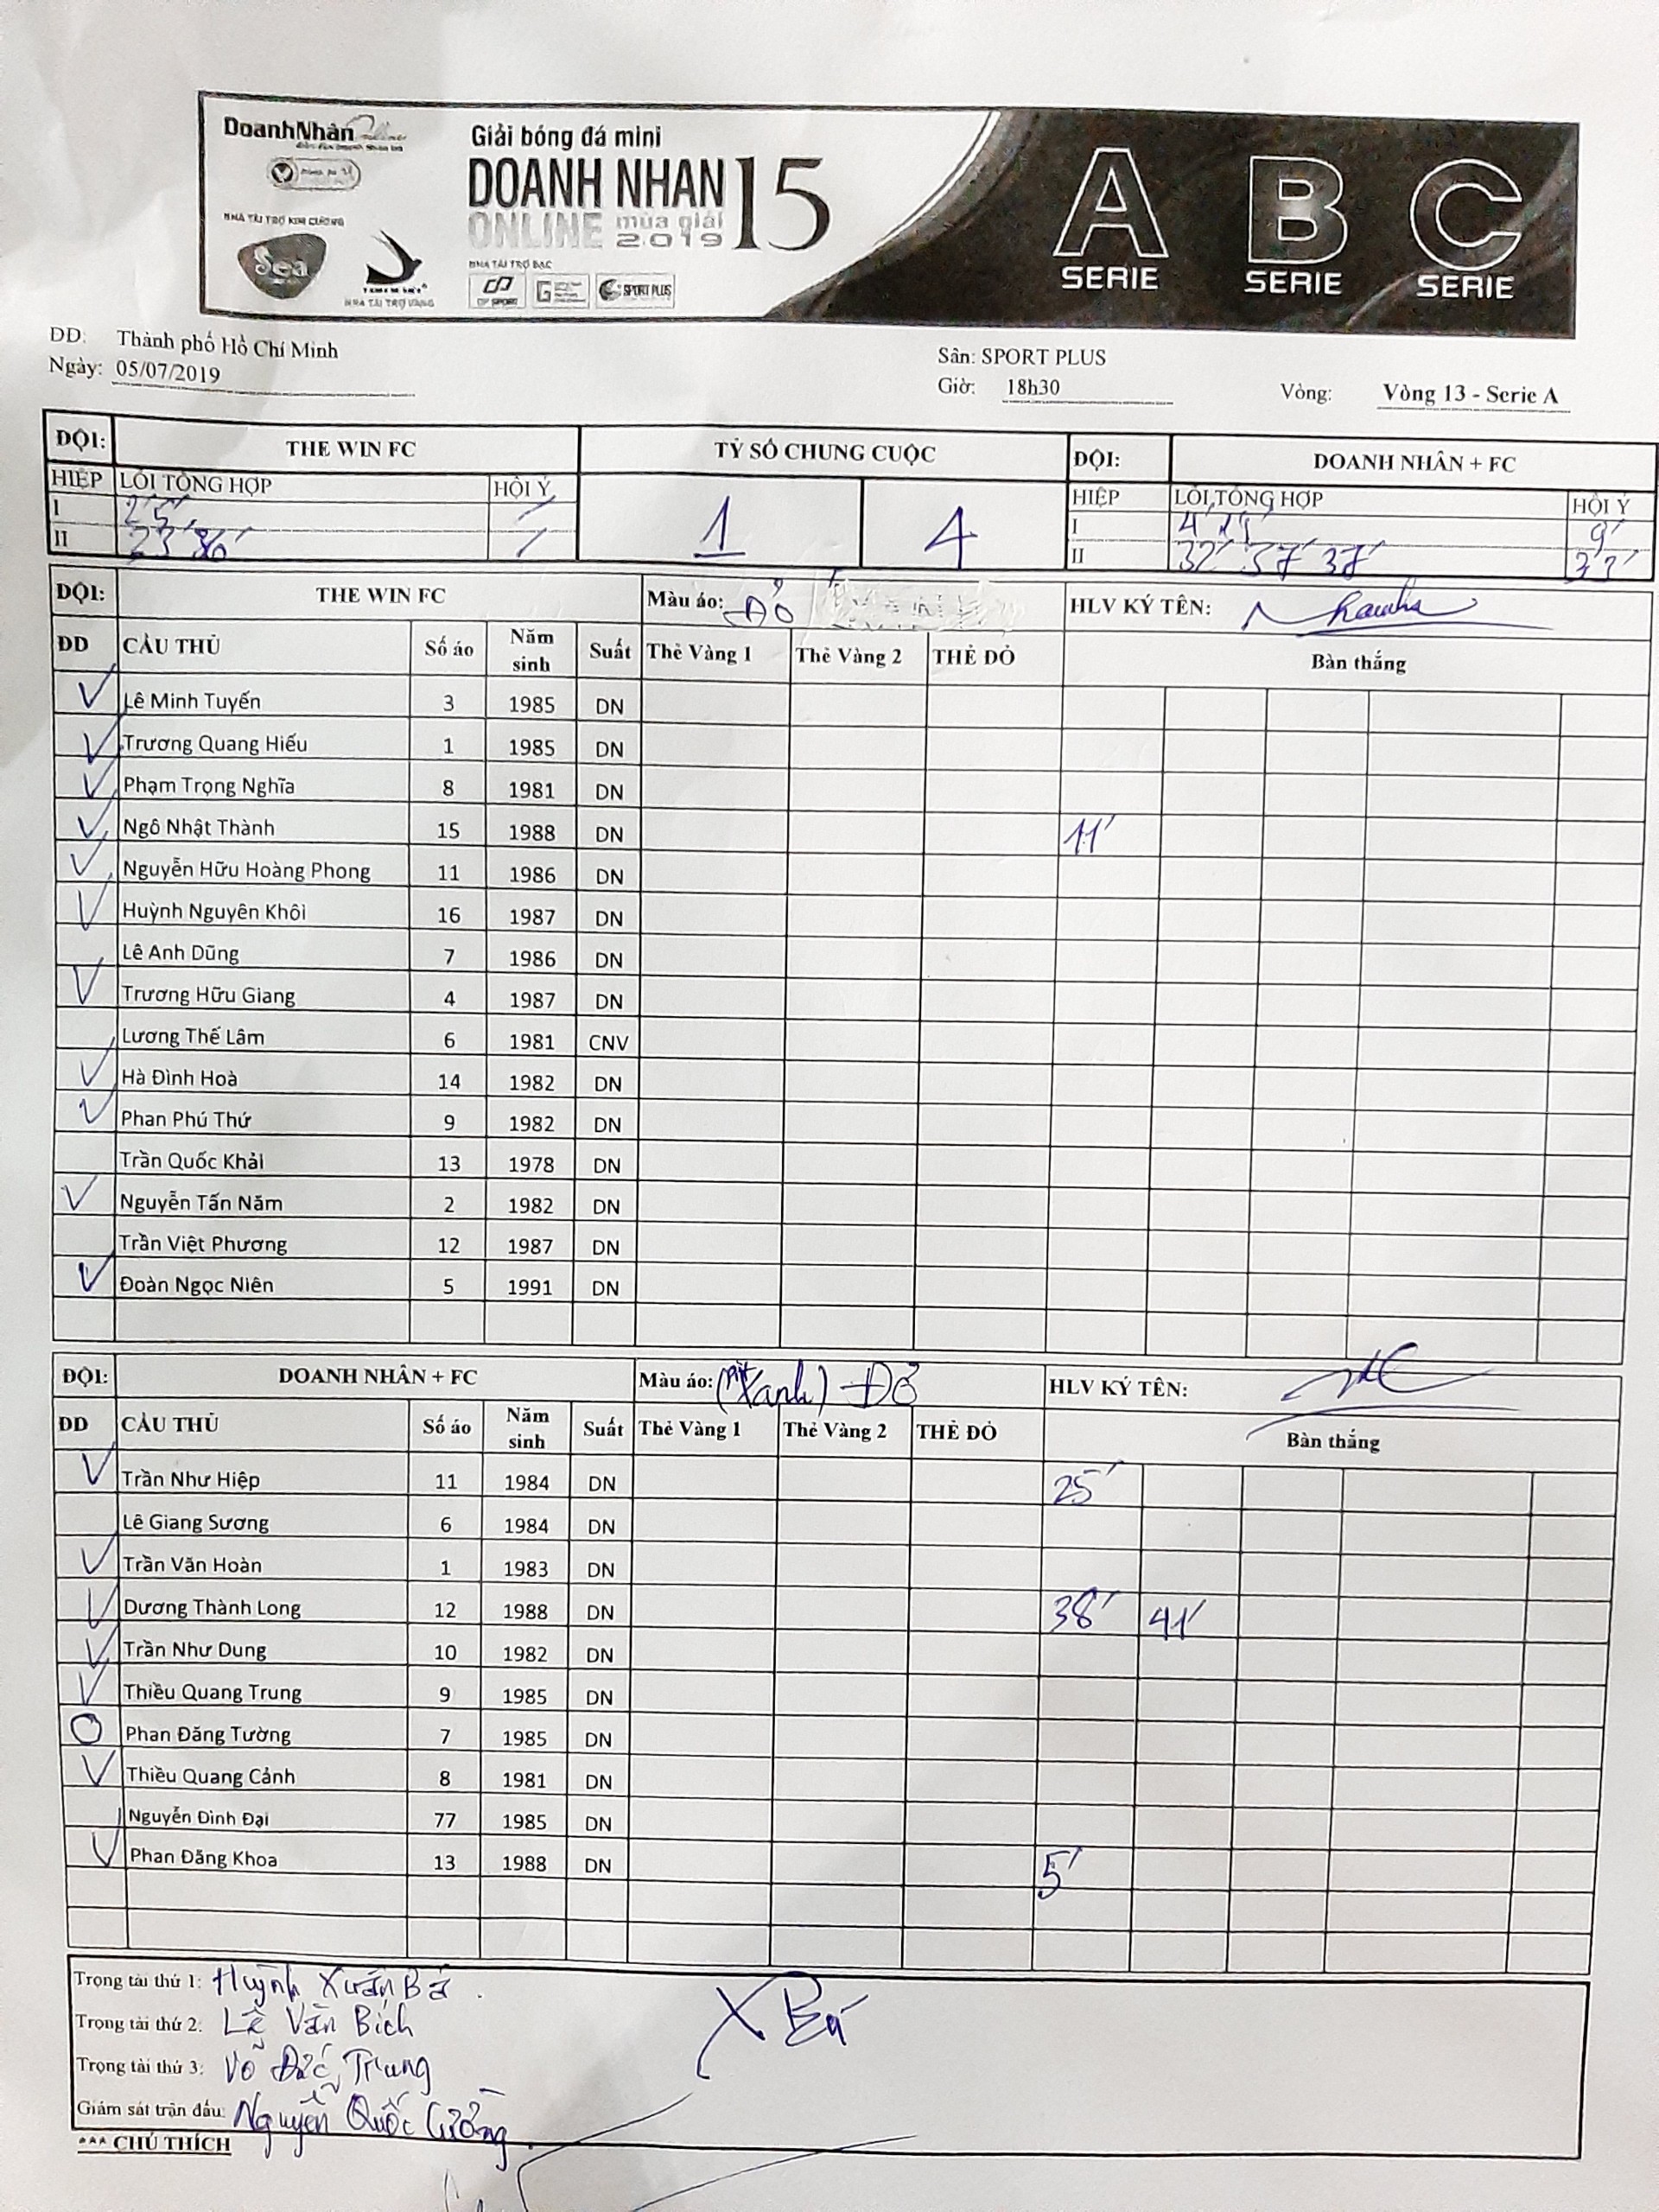 DoanhNhân Online
Giải bóng đá mini
DOANH NHAN 15
ONLINE mùa giải
2019
NHÀ TÀI TRỢ KIM CƯƠNG
Sea
NHÀ TÀI TRỢ VÀNG
NHÀ TÀI TRỢ BẠC
SPORT PLUS
A B C
SERIE SERIE SERIE
ĐD: Thành phố Hồ Chí Minh
Sân: SPORT PLUS
Ngày: 05/07/2019
Giờ: 18h30 Vòng: Vòng 13 - Serie A
ĐỘI: THE WIN FC TỶ SỐ CHUNG CUỘC ĐỘI: DOANH NHÂN + FC
HIỆP LỖI TỔNG HỢP HỘI Ý 1 4 HIỆP LỖI TỔNG HỢP HỘI Ý
I 25' I 4' 9'
II 23' 36' II 32' 37' 37' 33'
ĐỘI: THE WIN FC Màu áo: Đỏ HLV KÝ TÊN:
ĐD CẦU THỦ Số áo Năm sinh Suất Thẻ Vàng 1 Thẻ Vàng 2 THẺ ĐỎ Bàn thắng
✓ Lê Minh Tuyến 3 1985 DN
✓ Trương Quang Hiếu 1 1985 DN
✓ Phạm Trọng Nghĩa 8 1981 DN
✓ Ngô Nhật Thành 15 1988 DN 11'
✓ Nguyễn Hữu Hoàng Phong 11 1986 DN
✓ Huỳnh Nguyên Khôi 16 1987 DN
Lê Anh Dũng 7 1986 DN
✓ Trương Hữu Giang 4 1987 DN
Lương Thế Lâm 6 1981 CNV
✓ Hà Đình Hoà 14 1982 DN
✓ Phan Phú Thứ 9 1982 DN
Trần Quốc Khải 13 1978 DN
✓ Nguyễn Tấn Năm 2 1982 DN
Trần Việt Phương 12 1987 DN
✓ Đoàn Ngọc Niên 5 1991 DN
ĐỘI: DOANH NHÂN + FC Màu áo: (Pít Xanh) - Đỏ HLV KÝ TÊN:
ĐD CẦU THỦ Số áo Năm sinh Suất Thẻ Vàng 1 Thẻ Vàng 2 THẺ ĐỎ Bàn thắng
✓ Trần Như Hiệp 11 1984 DN 25'
Lê Giang Sương 6 1984 DN
✓ Trần Văn Hoàn 1 1983 DN
✓ Dương Thành Long 12 1988 DN 38' 41'
✓ Trần Như Dung 10 1982 DN
✓ Thiều Quang Trung 9 1985 DN
O Phan Đăng Tường 7 1985 DN
✓ Thiều Quang Cảnh 8 1981 DN
Nguyễn Đình Đại 77 1985 DN
✓ Phan Đăng Khoa 13 1988 DN 5'
Trọng tài thứ 1: Huỳnh Xuân Bá
X Bá
Trọng tài thứ 2: Lê Văn Bích
Trọng tài thứ 3: Võ Đức Trung
Giám sát trận đấu: Nguyễn Quốc Cường
*** CHÚ THÍCH